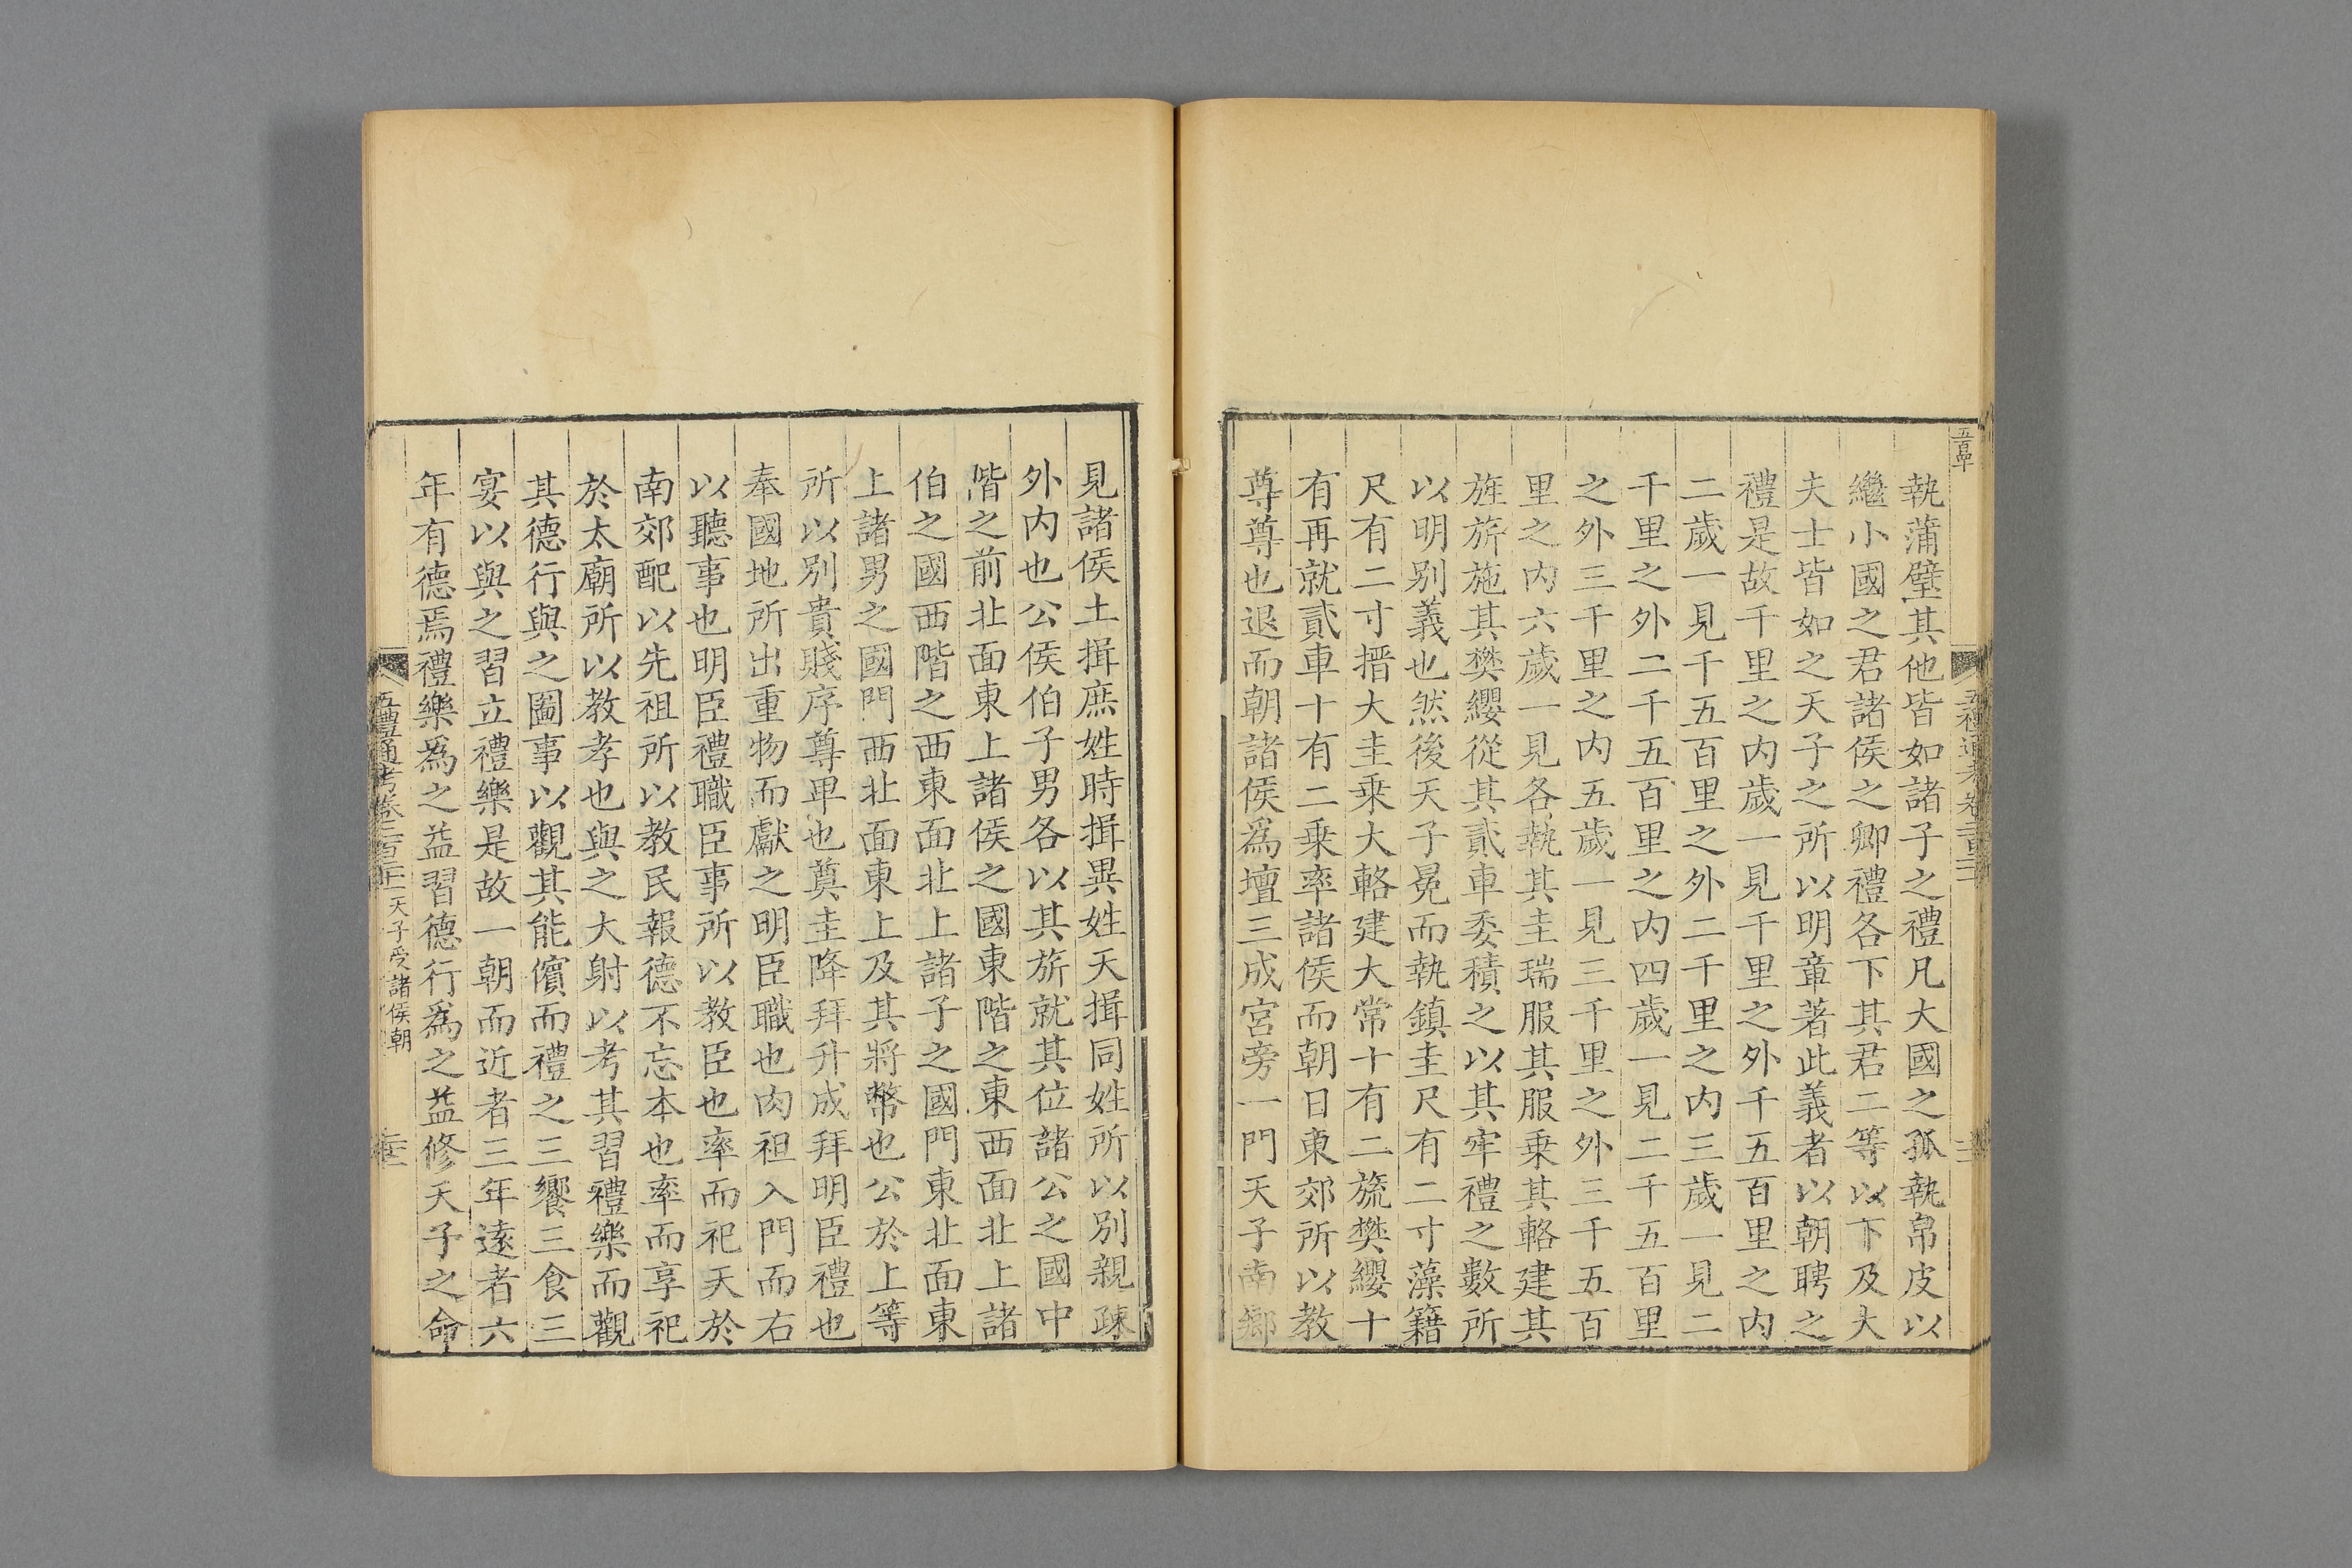 執蒲璧其他皆如諸子之禮凡大國之孤執帛皮以
繼小國之君諸侯之卿禮各下其君二等以下及大
夫士皆如之天子之所以明章著此義者以朝聘之
禮是故千里之内歲一見千里之外千五百里之内
二歲一見千五百里之外二千里之内三歲一見二
千里之外二千五百里之内四歲一見二千五百里
之外三千里之内五歲一見三千里之外三千五百
里之内六歲一見各執其圭瑞服其服乗其輅建其
旌旂施其樊纓從其貳車委積之以其牢禮之數所
以明别義也然後天子冕而執鎮圭尺有二寸藻籍
尺有二寸搢大圭乗大輅建大常十有二旒樊纓十
有再就貳車十有二乗率諸侯而朝日東郊所以教
尊尊也退而朝諸侯爲壇三成宮旁一門天子南鄉
見諸侯土揖庶姓時揖異姓天揖同姓所以别親疎
外内也公侯伯子男各以其旂就其位諸公之國中
階之前北面東上諸侯之國東階之東西面北上諸
伯之國西階之西東面北上諸子之國門東北面東
上諸男之國門西北面東上及其將幣也公於上等
所以别貴賤序尊卑也奠圭降拜升成拜明臣禮也
奉國地所出重物而獻之明臣職也肉袒入門而右
以聽事也明臣禮職臣事所以教臣也率而祀天於
南郊配以先祖所以教民報德不忘本也率而享祀
於太廟所以教孝也與之大射以考其習禮樂而觀
其德行與之圖事以觀其能儐而禮之三饗三食三
宴以與之習立禮樂是故一朝而近者三年遠者六
年有德焉禮樂爲之益習德行爲之益修天子之命
五禮通考卷二百二十一 天子受諸侯朝